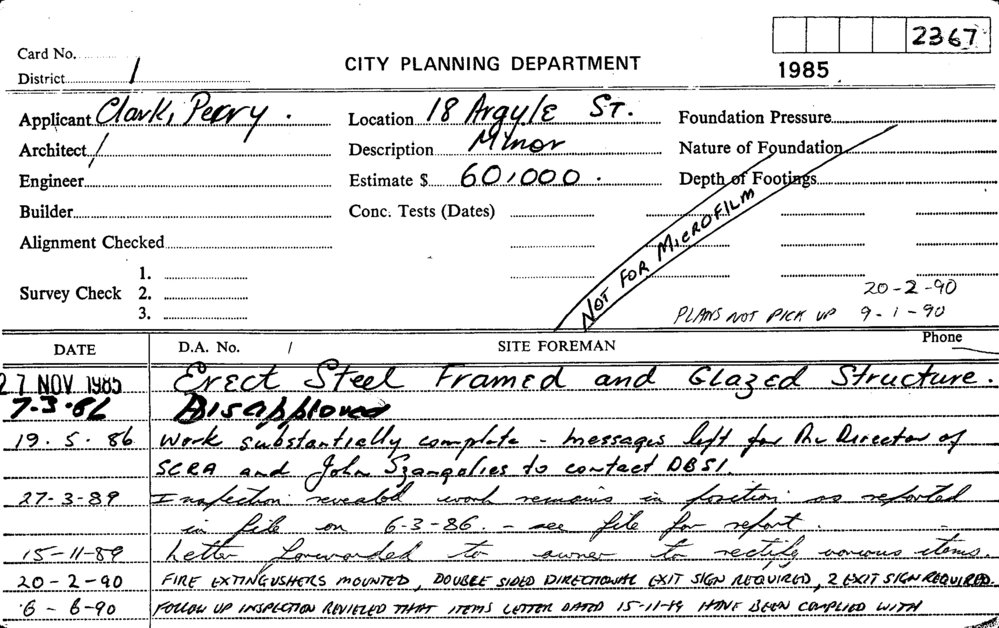 2367
Card No.
District 1
CITY PLANNING DEPARTMENT
1985
Applicant Clark, Perry.
Location 18 Argyle St.
Foundation Pressure
Architect /
Description Minor
Nature of Foundation
Engineer
Estimate $ 60,000.
Depth of Footings
Builder
Conc. Tests (Dates)
NOT FOR MICROFILM
Alignment Checked
1.
Survey Check 2.
3.
20-2-90
PLANS NOT PICK UP 9-1-90
DATE D.A. No. / SITE FOREMAN Phone
27 NOV 1985 Erect Steel Framed and Glazed Structure.
7-3-86 Disapproved
19.5.86 Work substantially complete - messages left for the Director of
SCRA and John to contact DBSI.
27-3-89 Inspection revealed work remains in position as reported
in file on 6-3-86. - see file for report.
15-11-89 Letter forwarded to owner to rectify various items.
20-2-90 FIRE EXTINGUSHERS MOUNTED, DOUBLE SIDED DIRECTIONAL EXIT SIGN REQUIRED, 2 EXIT SIGN REQUIRED.
6-6-90 FOLLOW UP INSPECTION REVIELED THAT ITEMS LETTER DATED 15-11-89 HAVE BEEN COMPLIED WITH